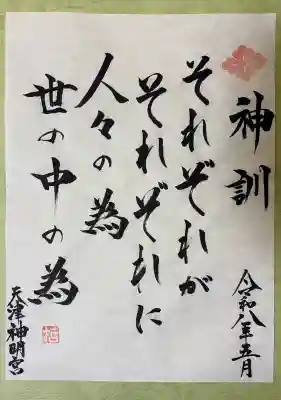 神訓
令和八年五月
それぞれが
それぞれに
人々の為
世の中の為
天津神明宮